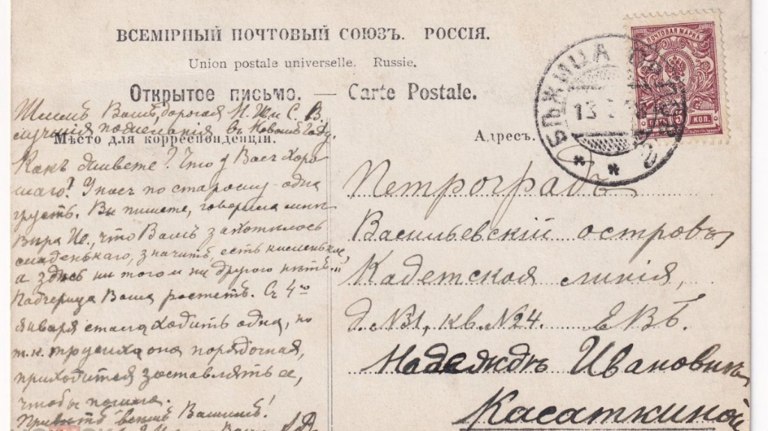 ВСЕМІРНЫЙ ПОЧТОВЫЙ СОЮЗЪ. РОССІЯ.
Union postale universelle. Russie.
Открытое письмо. — Carte Postale.
Мѣсто для корреспонденціи.
Адресъ.
ПОЧТОВАЯ МАРКА
5 КОП. 5
БѢЖИЦА
13
Шлемъ Вамъ, дорогая Н. И. и С. В.
лучшія пожеланія въ Новомъ Году.
Какъ живете? Что у Васъ хоро-
шаго? У насъ по старому одна
грусть. Вы пишете, говорила мнѣ
Вѣра, что Вамъ захотѣлось
сладенькаго, значитъ есть кисленькое,
а здѣсь ни того и ни другого нѣтъ.
Падчерица Ваша растетъ. Съ 4го
января стала ходить одна, но
т.к. трусиха она порядочная,
приходится заставлять ее,
чтобы пошла.
Привѣтъ всѣмъ Вашимъ!
Петроградъ
Васильевскій островъ
Кадетская линія,
д. №31, кв. №24. ЕВБ.
Надеждѣ Ивановнѣ
Касаткиной